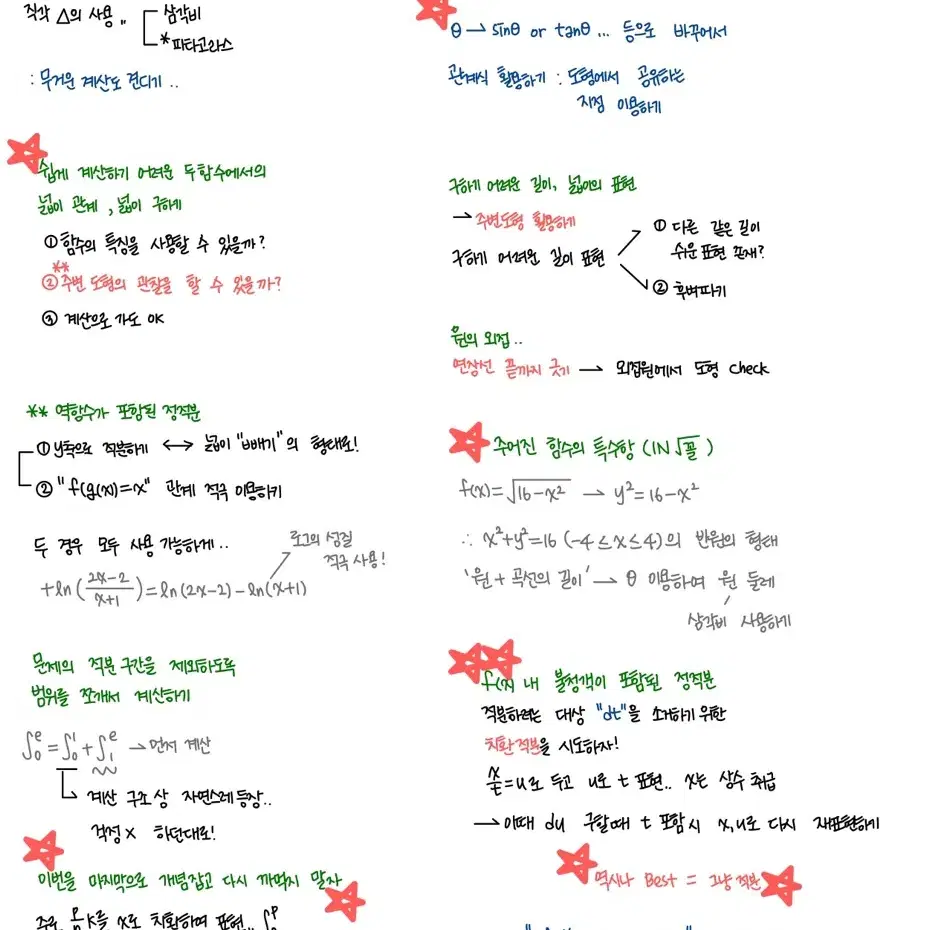 직각 △의 사용 ,, 삼각비
*피타고라스
: 무거운 계산도 견디기 ..
쉽게 계산하기 어려운 두함수에서의
넓이 관계, 넓이 구하기
① 함수의 특징을 사용할 수 있을까?
**
② 주변 도형의 관찰을 할 수 있을까?
③ 계산으로 가도 OK
** 역함수가 포함된 정적분
① y축으로 적분하기 ↔ 넓이 "빼기"의 형태로!
② "f(g(x)=x" 관계 적극 이용하기
두 경우 모두 사용 가능하게..
로그의 성질
적극 사용!
+ln(2x-2/x+1)=ln(2x-2)-ln(x+1)
문제의 적분 구간을 제외하도록
범위를 쪼개서 계산하기
∫₀ᵉ=∫₀¹+∫₁ᵉ → 먼저 계산
계산 구조상 자연스레 등장..
걱정 X 하던대로!
이번을 마지막으로 개념잡고 다시 까먹지 말자
k를 x로 치환하여 표현..
θ → sinθ or tanθ ... 등으로 바꾸어서
관계식 활용하기 : 도형에서 공유하는
지점 이용하기
구하기 어려운 길이, 넓이의 표현
→ 주변도형 활용하기
구하기 어려운 길이 표현
① 다른 같은 길이
쉬운 표현 존재?
② 후벼파기
원의 외접..
연장선 끝까지 긋기 → 외접원에서 도형 check
주어진 함수의 특수항 (IN √꼴)
f(x)=√16-x² → y²=16-x²
∴ x²+y²=16 (-4≤x≤4)의 반원의 형태
'원 + 곡선의 길이' → θ 이용하여 원 둘레
삼각비 사용하기
f(x) 내 불청객이 포함된 정적분
적분하려는 대상 "dt"을 소거하기 위한
치환적분을 시도하자!
x/t=u로 두고 u로 t 표현.. x는 상수 취급
→ 이때 du 구할때 t 포함시 x,u로 다시 재표현하기
역시나 Best = 그냥 적분